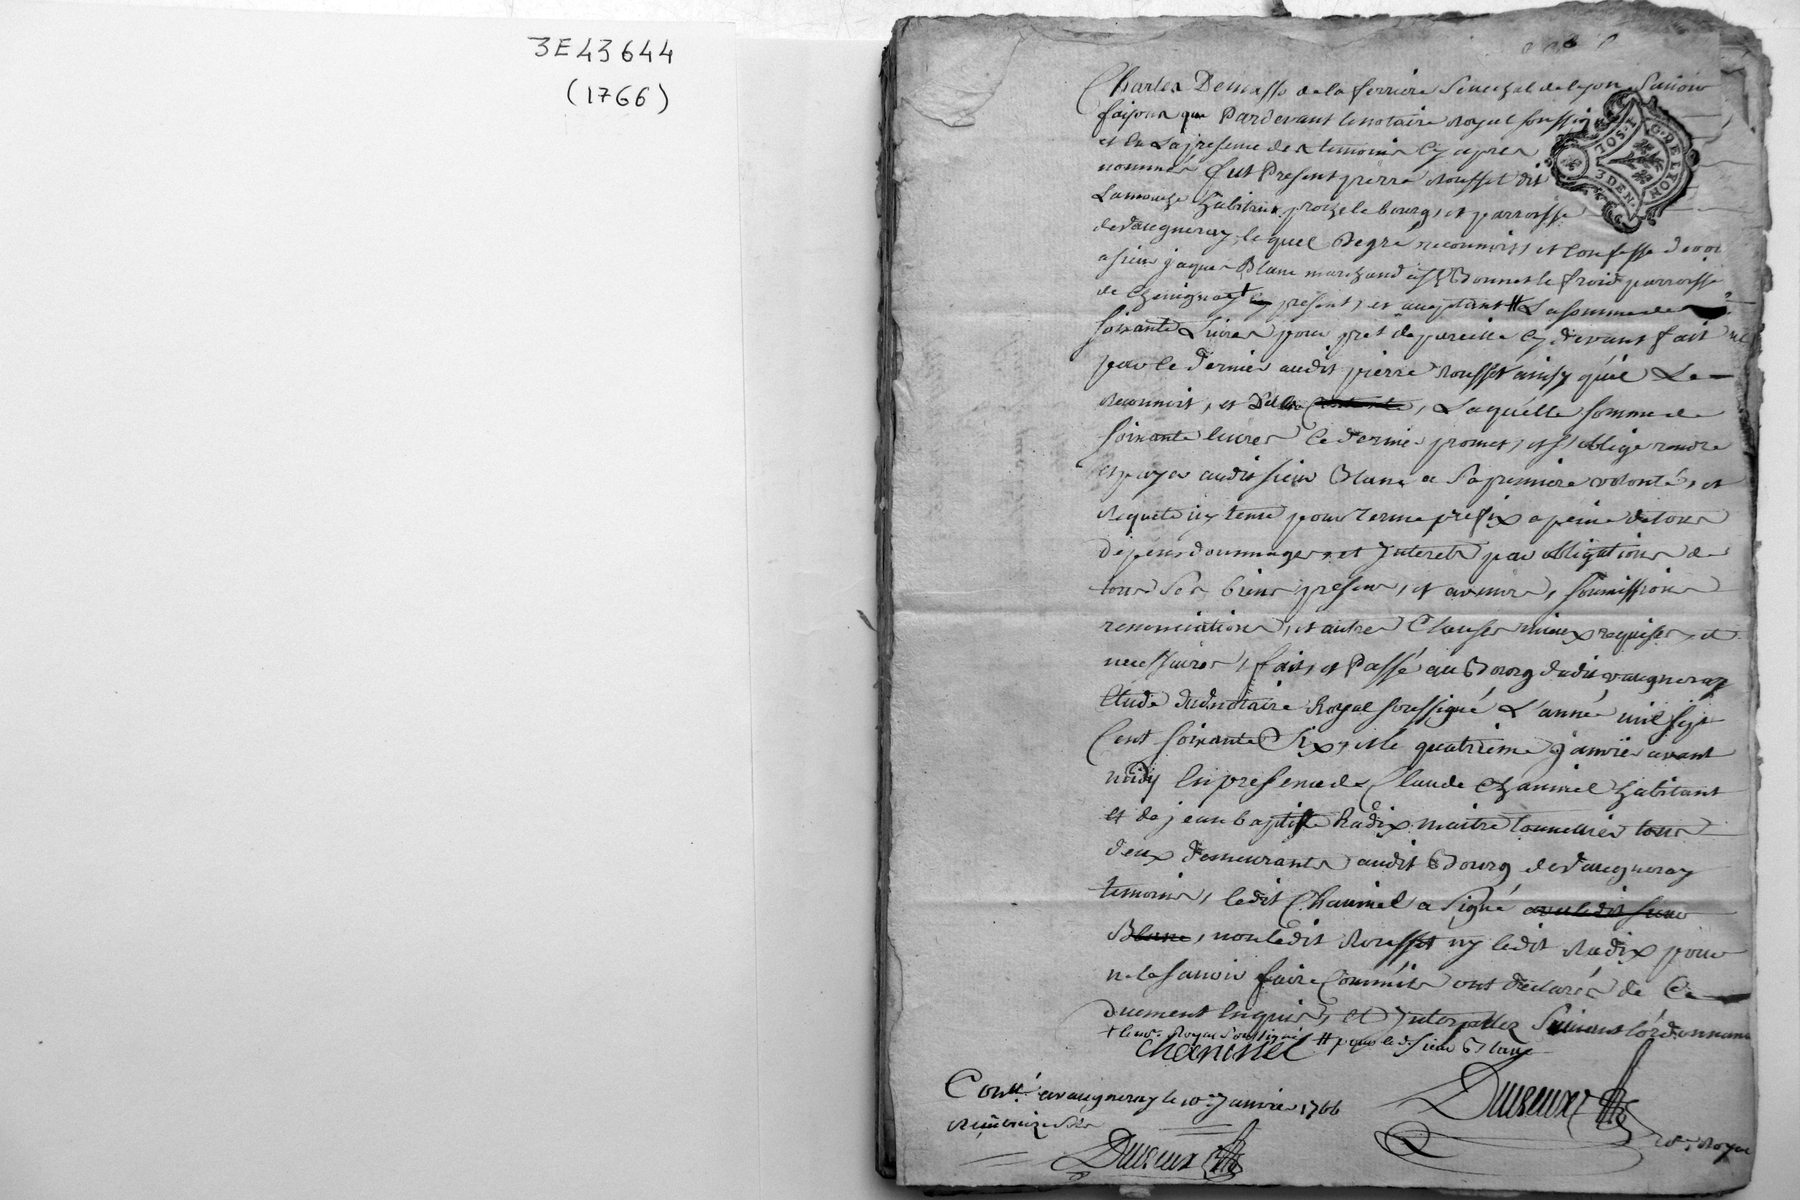 3E43644
(1766)
Charles Demasso de la ferriere Senechal de Lyon Savoir
faisons que Pardevant le notaire Royal soussigné
et en la presence des temoins cy apres
nommés fut Present pierre Rousset dit
Lamouche habitant proche le bourg, et parroisse
de Vaugneray, lequel de gré reconnoit, et Confesse devoir
a sieur jaque Blanc marchand a St Bonnet le froid parroisse
de Chevignay + present, et acceptant # La somme de
soixante Livres pour pret de pareille cy devant fait
par le dernier audit pierre Rousset ainsy qu'il Le
Reconnoit, et , Laquelle somme de
soixante livres ce dernier promet, et s'oblige rendre
et payer audit sieur Blanc a Sa premiere volonté, et
Requete icy tenu pour terme prefix a peine de tous
depens dommages, et Interets par obligations de
tous Ses biens presens, et avenir, soumissions
renonciations, et autres Clauses mieux requises, et
necessaires, fait, et Passé au Bourg dudit vaugneray
Etude dud. notaire Royal soussigné L'année mil sept
Cent soixante Six, et le quatrieme janvier avant
midy En presence de Claude Chaninel habitant
et de jean baptiste Radix maitre tonnellier tous
deux demeurants audit Bourg de Vaugneray
temoins, ledit Chaninel a Signé avec ledit sieur
Blanc, non ledit Rousset ny ledit Radix pour
ne le savoir faire Comme ils ont declarés de Ce
duement Enquis, et Interpellez Suivant l'ordonnance
+ le no.re Royal Soussigné # pour led. sieur Blanc
Chaninel
Conllé a vaugneray le 10 janvier 1766
Dureux
Dureux
no.re Royal
G. DE LYON
1 SOL
3 DEN.